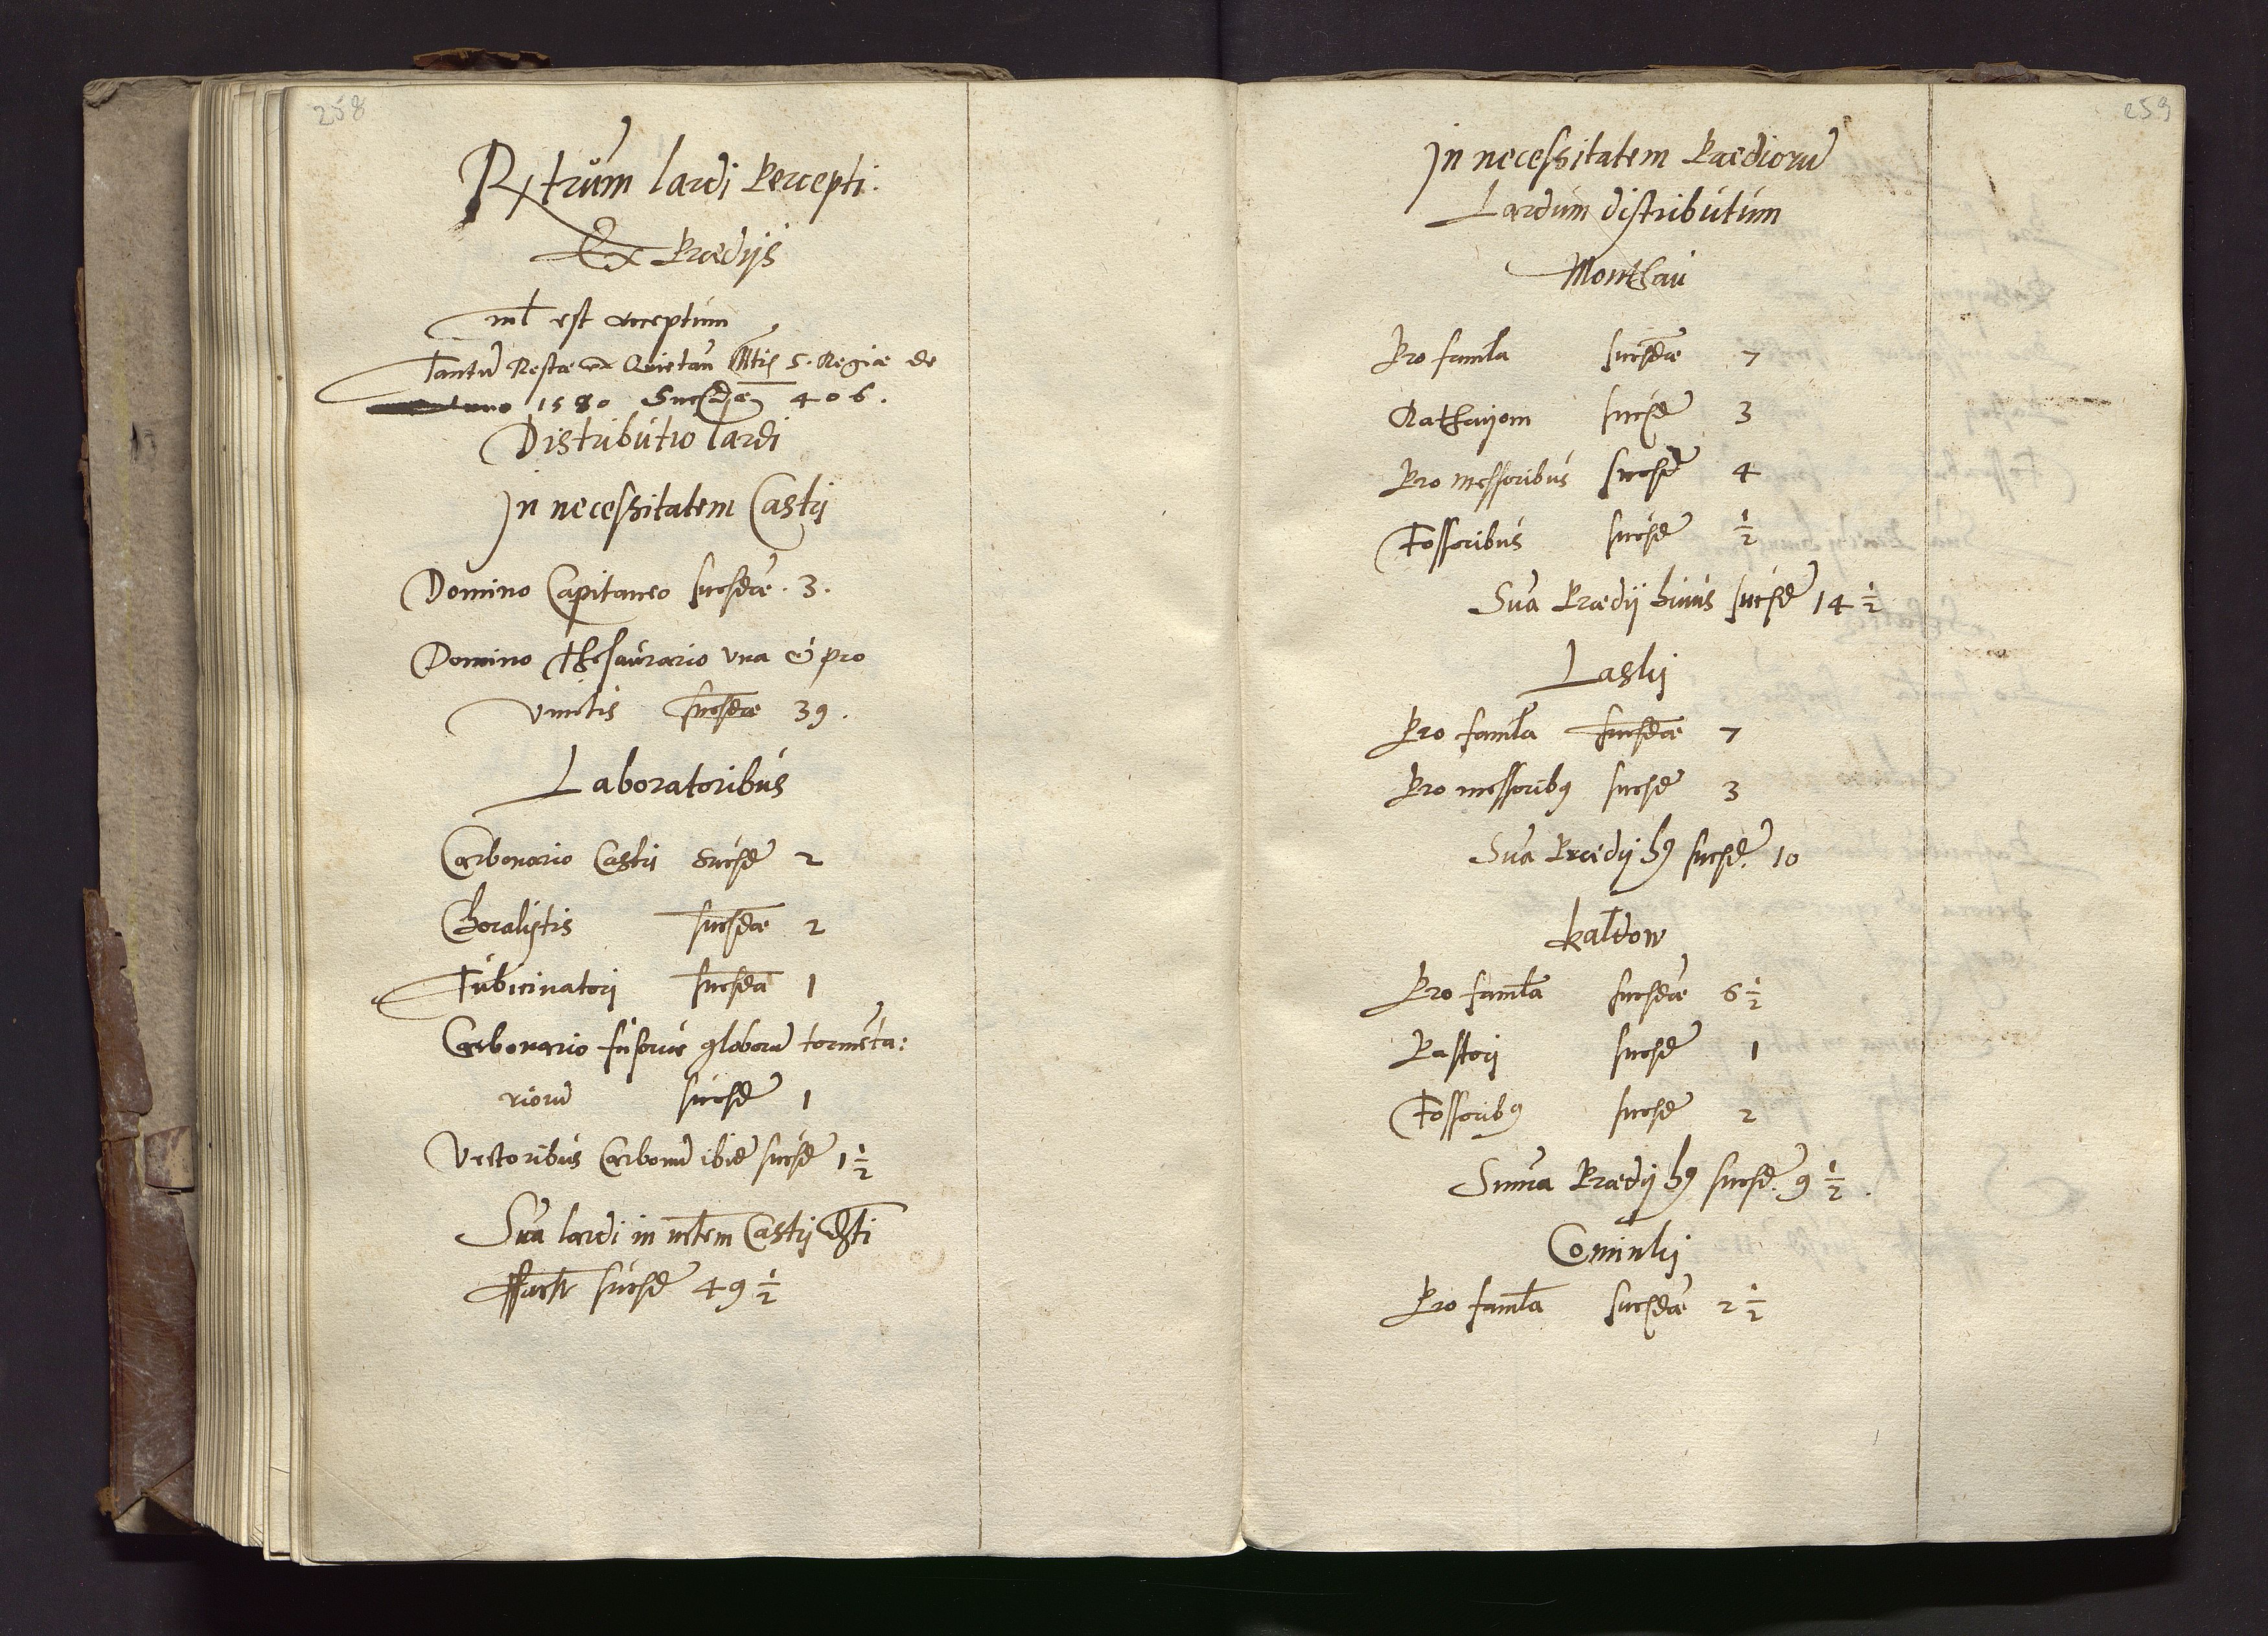 258
Rxtrum lardi Percepti.
Ex Praedijs
nll est acceptum
Tantu Restae ex Quietan Mtis S. Regiae de
Anno 1580 Sucsdae 406.
Distributio lardi
In necessitatem Castrj
Domino Capitaneo sucsdae. 3.
Domino Thesaurario una et pro
vinctis sucsdae 39.
Laboratoribus
Carbonario Castrj Sucsd 2
Choralistis sucsdae 2
Tubicinatorj sucsda 1
Carbonario fusoriae globoru tormenta:
rioru sucsd 1
Vectoribus Carbonu ibid sucsd 1 1/2
Sua lardi in nctem Castrj
sucsd 49 1/2
259
In necessitatem Praedioru
Lardum distributum
Monthau
Pro famla sucsdae 7
Rathaijom sucsd 3
Pro messoribus sucsd 4
Fossoribus sucsd 1/2
Sua Praedij huius sucsd 14 1/2
Laskj
Pro famla sucsdae 7
Pro messorib9 sucsd 3
Sua Praedij h9 sucsd. 10
kaldow
Pro famla sucsdae 6 1/2
Pastorj sucsd 1
Fossorib9 sucsd 2
Suma Praedij h9 sucsd. 9 1/2.
Cominkj
Pro famla sucsdae 2 1/2